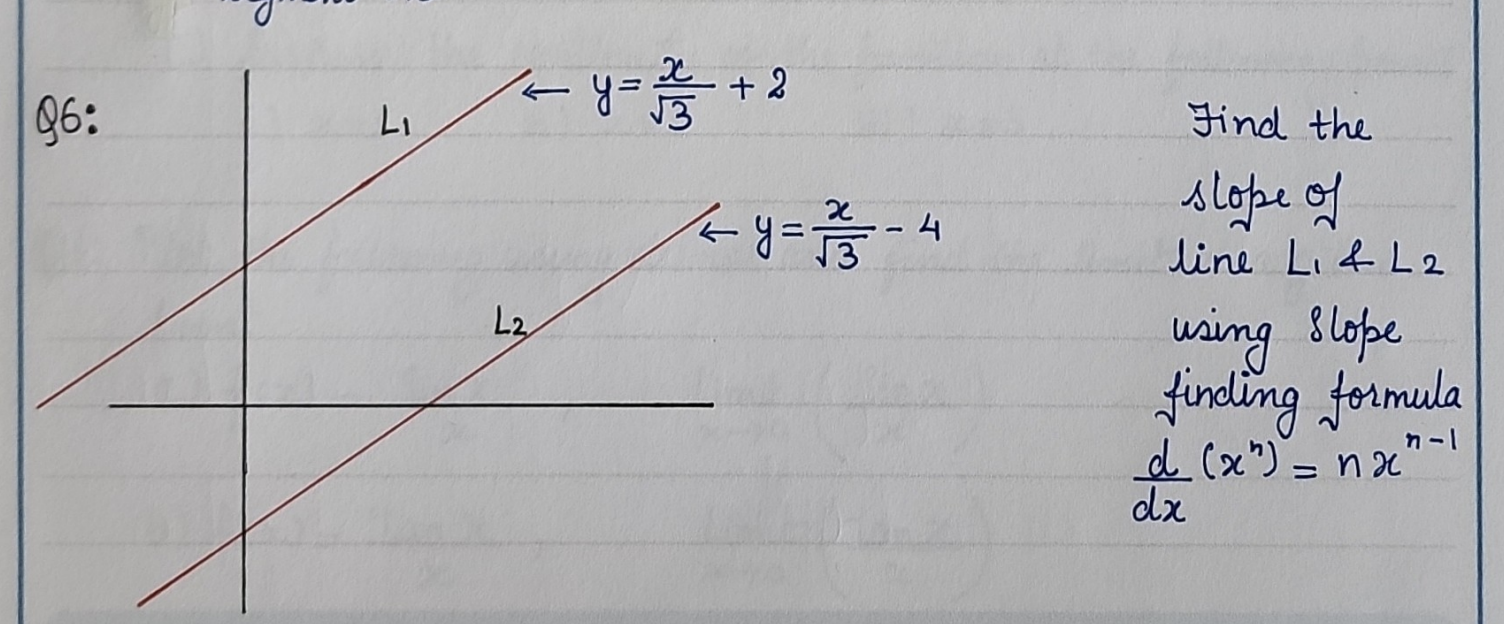 Q6:
L1
← y = x/√3 + 2
L2
← y = x/√3 - 4
Find the
slope of
line L1 & L2
using slope
finding formula
d/dx (xⁿ) = n xⁿ⁻¹